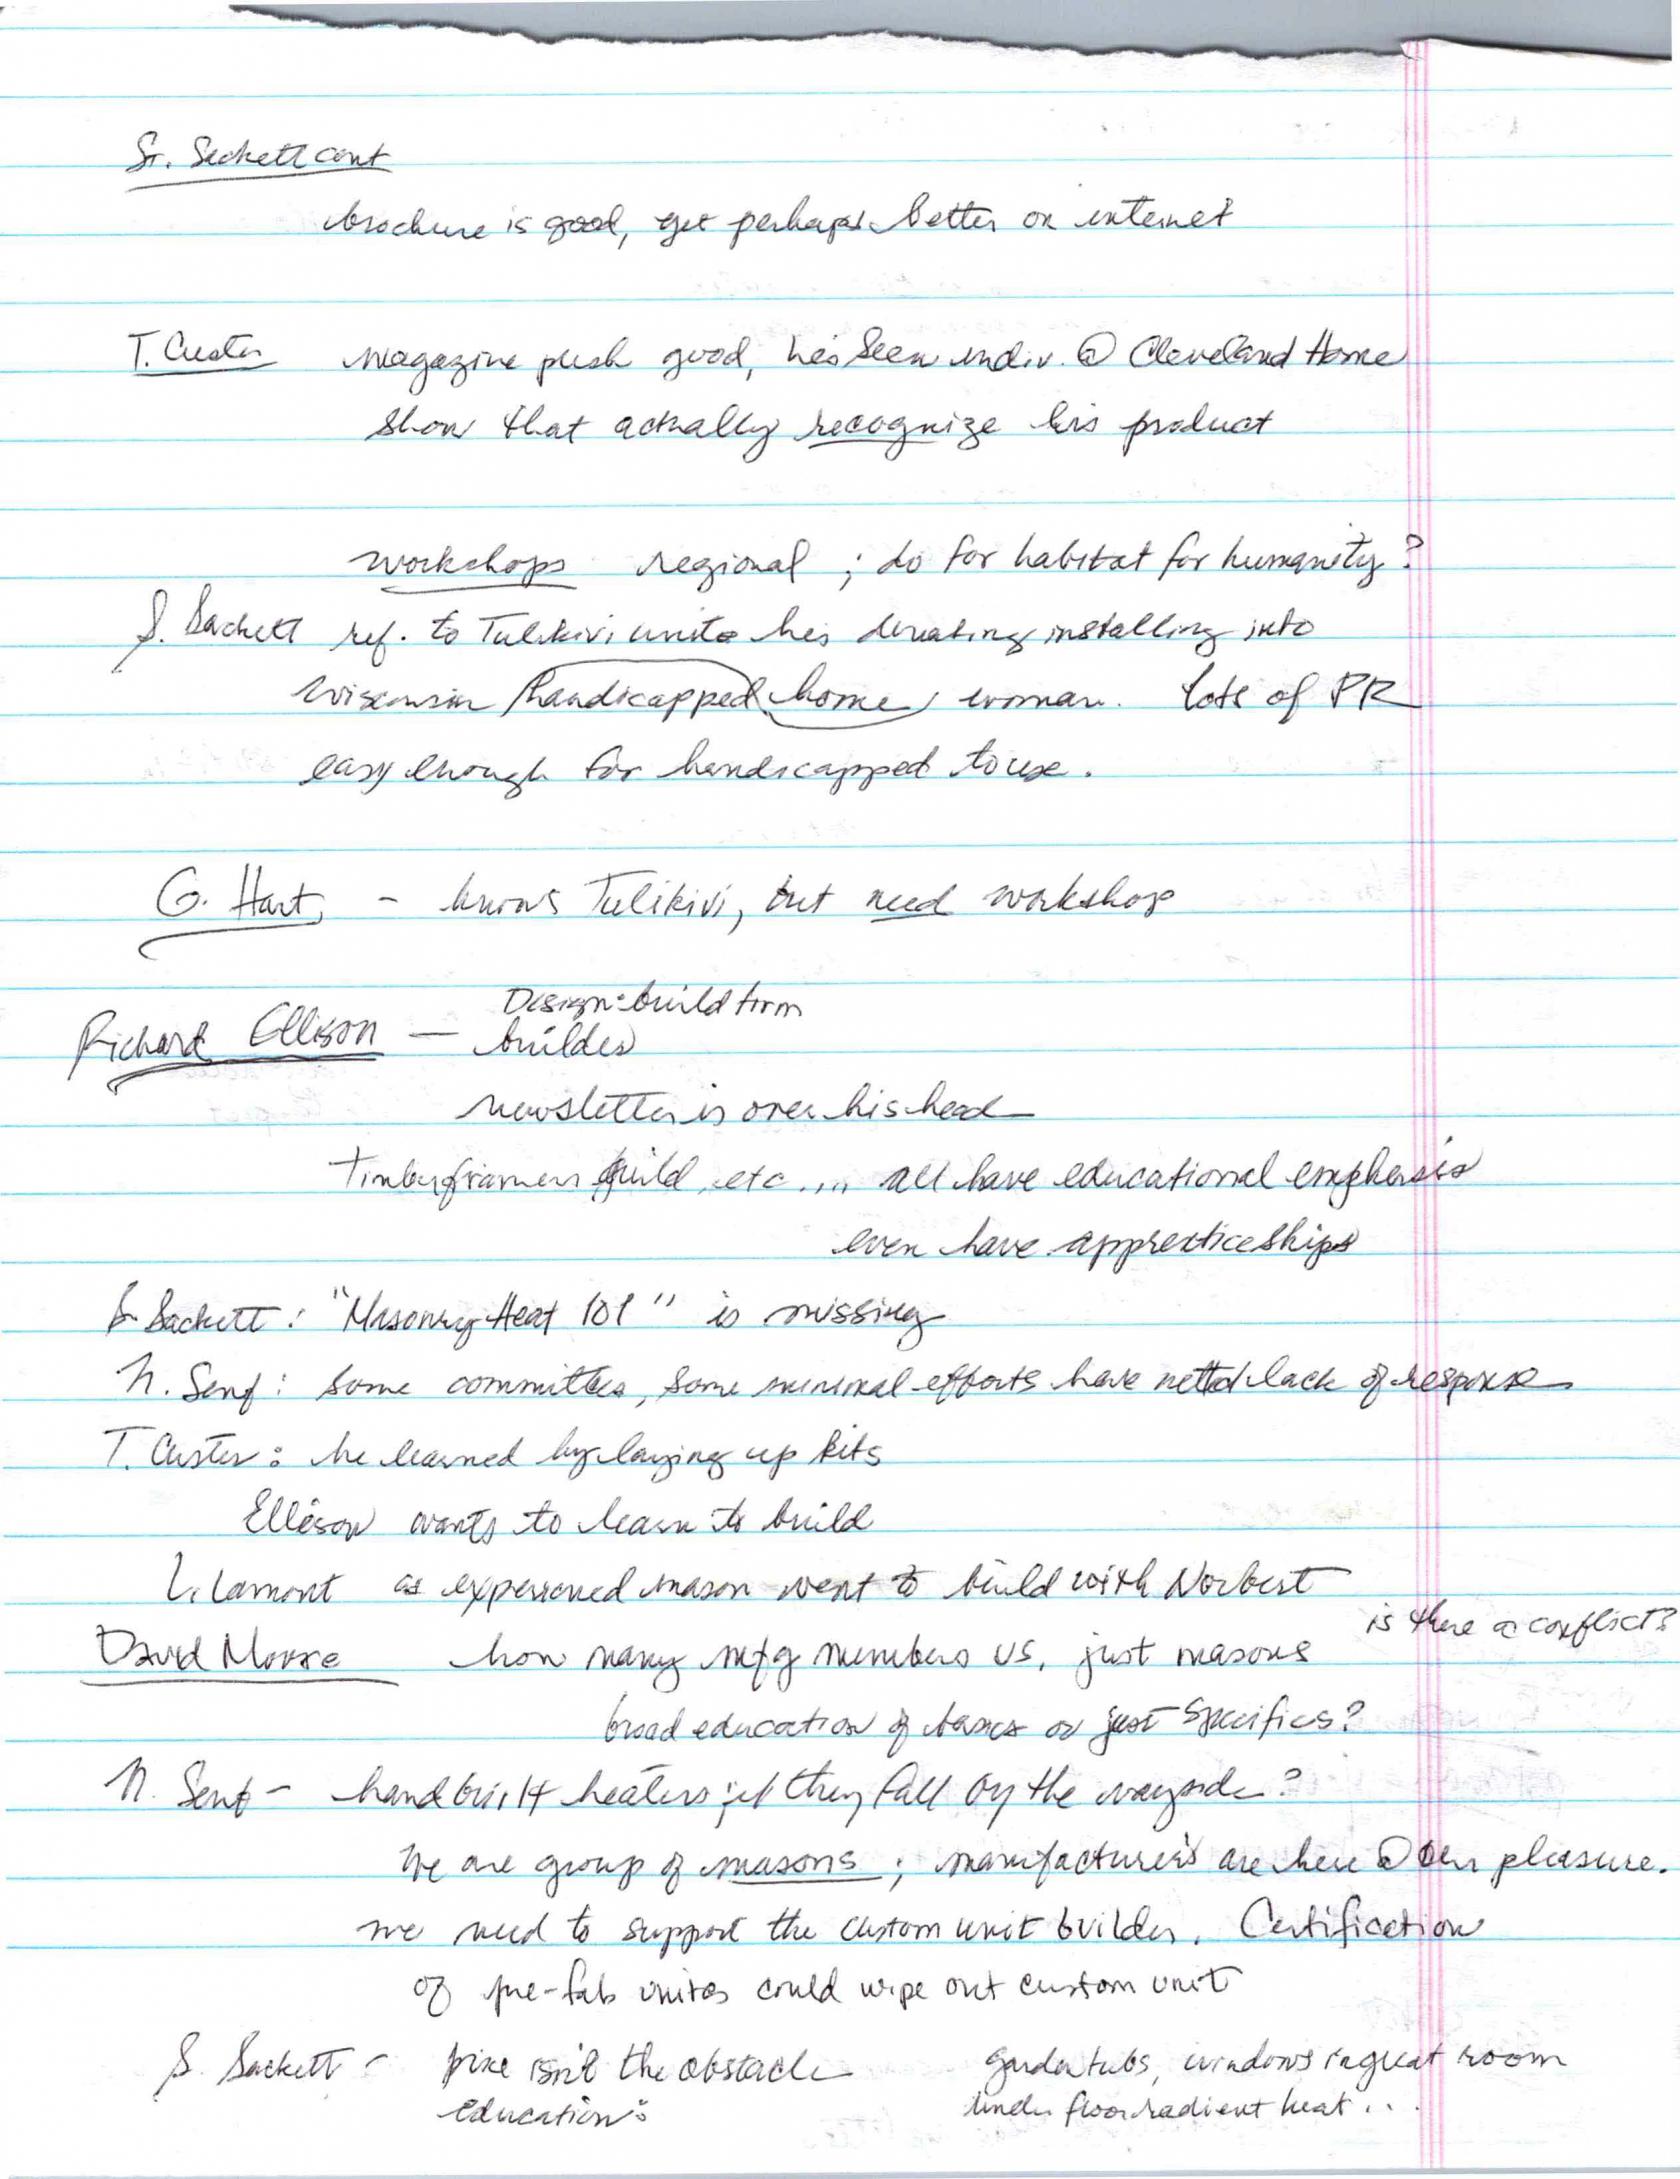 Sr. Sackett cont
brochure is good, yet perhaps better on internet
T. Custer magazine push good, he's seen indiv. @ Cleveland Home
show that actually recognize his product
workshops regional ; do for habitat for humanity?
S. Sackett ref. to Tulikivi units he's donating installing into
Wisconsin handicapped home woman. lots of PR
easy enough for handicapped to use.
G. Hart, - knows Tulikivi, but need workshop
Design-build firm
Richard Ellison — builder
newsletter is over his head
Timberframers guild, etc .... all have educational emphasis
even have apprenticeships
S. Sackett: "Masonry Heat 101" is missing
N. Senf: some committees, some minimal efforts have netted lack of response
T. Custer: he learned by laying up kits
Ellison wants to learn to build
L. Lamont as experienced mason went to build with Norbert
is there a conflict?
David Moore how many mfg members vs. just masons
broad education of basics or just specifics?
N. Senf - handbuilt heaters; if they fall by the wayside?
We are group of masons ; manufacturers are here @ our pleasure.
we need to support the custom unit builder. Certification
of pre-fab units could wipe out custom unit
S. Sackett - price isn't the obstacle garden tubs, windows in great room
education: under floor radient heat...